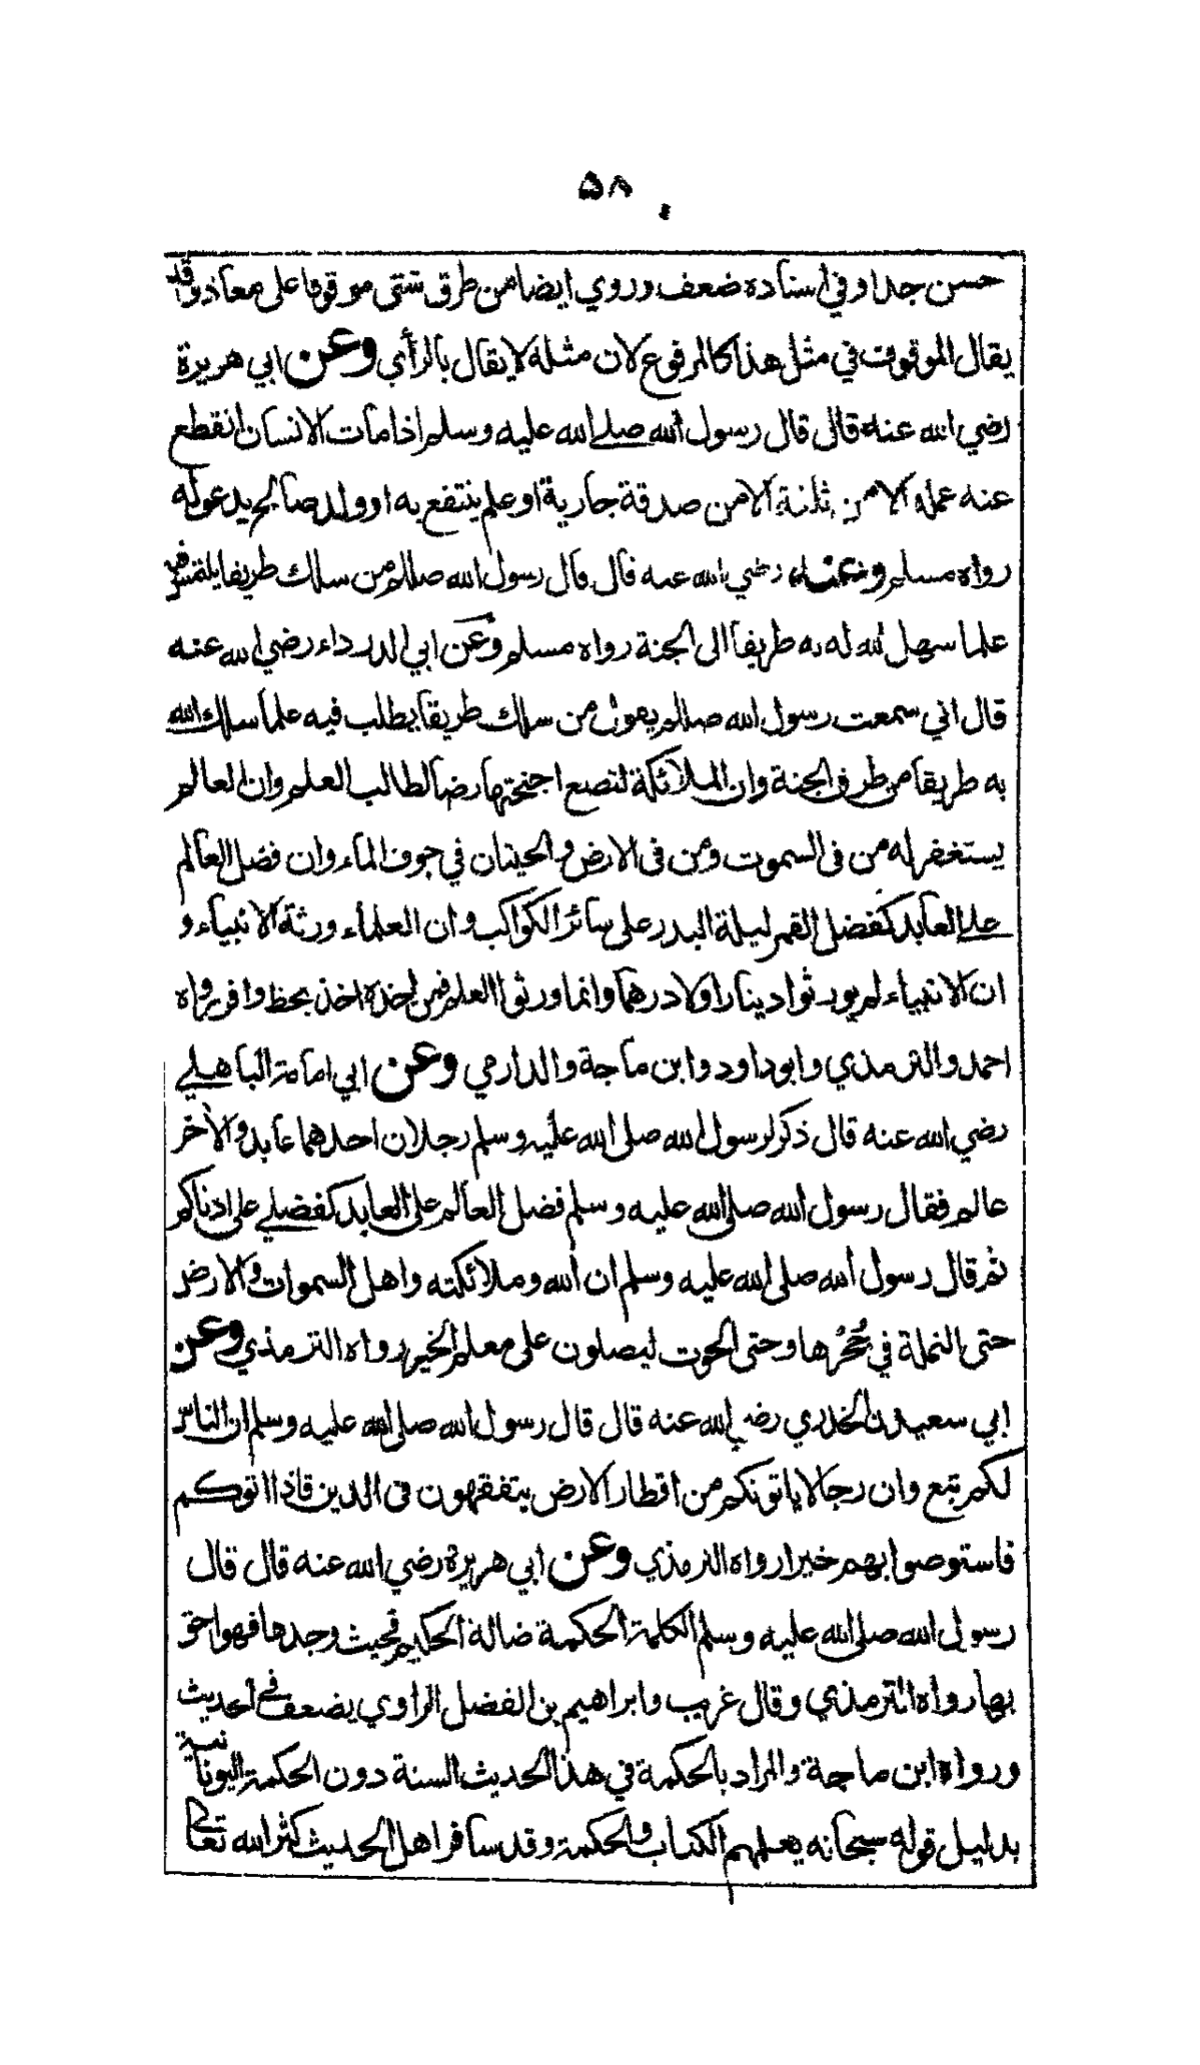 ٥٨
حسن جدا وفي اسناده ضعف وروي ايضا من طرق شتى موقوفا على معاذ وقد
يقال الموقوف في مثل هذا كالمرفوع لان مثله لا يقال بالرأي وعن ابي هريرة
رضي الله عنه قال قال رسول الله صلى الله عليه وسلم اذا مات الانسان انقطع
عنه عمله الا من ثلثة الا من صدقة جارية او علم ينتفع به او ولد صالح يدعو له
رواه مسلم وعنه رضي الله عنه قال قال رسول الله صللم من سلك طريقا يلتمس فيه
علما سهل الله له به طريقا الى الجنة رواه مسلم وعن ابي الدرداء رضي الله عنه
قال اني سمعت رسول الله صللم يقول من سلك طريقا يطلب فيه علما سلك الله
به طريقا من طرق الجنة وان الملائكة لتضع اجنحتها رضا لطالب العلم وان العالم
يستغفر له من فى السموت ومن فى الارض والحيتان في جوف الماء وان فضل العالم
على العابد كفضل القمر ليلة البدر على سائر الكواكب وان العلماء ورثة الانبياء و
ان الانبياء لم يورثوا دينارا ولا درهما وانما ورثوا العلم فمن اخذه اخذ بحظ وافر رواه
احمد والترمذي وابوداود وابن ماجة والدارمي وعن ابي امامة الباهلي
رضي الله عنه قال ذكر لرسول الله صلى الله عليه وسلم رجلان احدهما عابد والأخر
عالم فقال رسول الله صلى الله عليه وسلم فضل العالم على العابد كفضلي على ادناكم
ثم قال رسول الله صلى الله عليه وسلم ان الله وملائكته واهل السموات والارض
حتى النملة في جُحْرُها وحتى الحوت ليصلون على معلم الخير رواه الترمذي وعن
ابي سعيد ن الخدري رضي الله عنه قال قال رسول الله صلى الله عليه وسلم ان الناس
لكم تبع وان رجالا ياتونكم من اقطار الارض يتفقهون فى الدين فاذا اتوكم
فاستوصوا بهم خيرا رواه الترمذي وعن ابي هريرة رضي الله عنه قال قال
رسول الله صلى الله عليه وسلم الكلمة الحكمة ضالة الحكيم فحيث وجدها فهو احق
بها رواه الترمذي وقال غريب وابراهيم بن الفضل الراوي يضعف فى الحديث
ورواه ابن ماجة والمراد بالحكمة في هذا الحديث السنة دون الحكمة اليونانية
بدليل قوله سبحانه يعلمهم الكتاب والحكمة وقد سافر اهل الحديث كثر الله تعالى